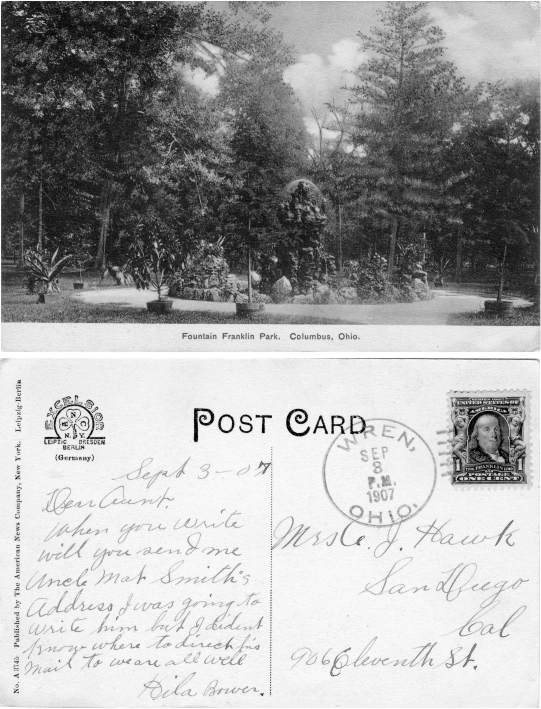 Fountain Franklin Park. Columbus, Ohio.
No. A 3745 Published by The American News Company, New York. Leipzig-Berlin
EXCELSIOR
N
N.Y.
LEIPZIG DRESDEN
BERLIN
(Germany)
POST CARD
WREN,
SEP
3
P.M.
1907
OHIO.
UNITED STATES OF
AMERICA
1
1
FRANKLIN
POSTAGE
ONE CENT
Sept 3-07
Dear Aunt.
When you write
will you send me
Uncle Mat Smith's
Address I was going to
write him but I dident
know where to direct his
mail to we are all well
Hila Bower.
Mrs C. J. Hawk
San Diego
Cal
906 Eleventh St.